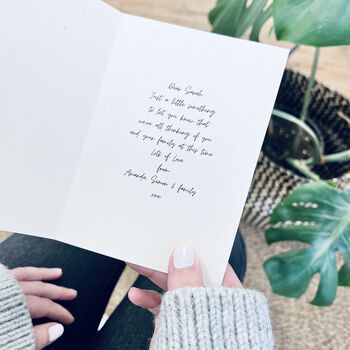 Dear Sarah
Just a little something
to let you know that
we're all thinking of you
and your family at this time
Lots of Love
from
Amanda, Simon & family
xxx